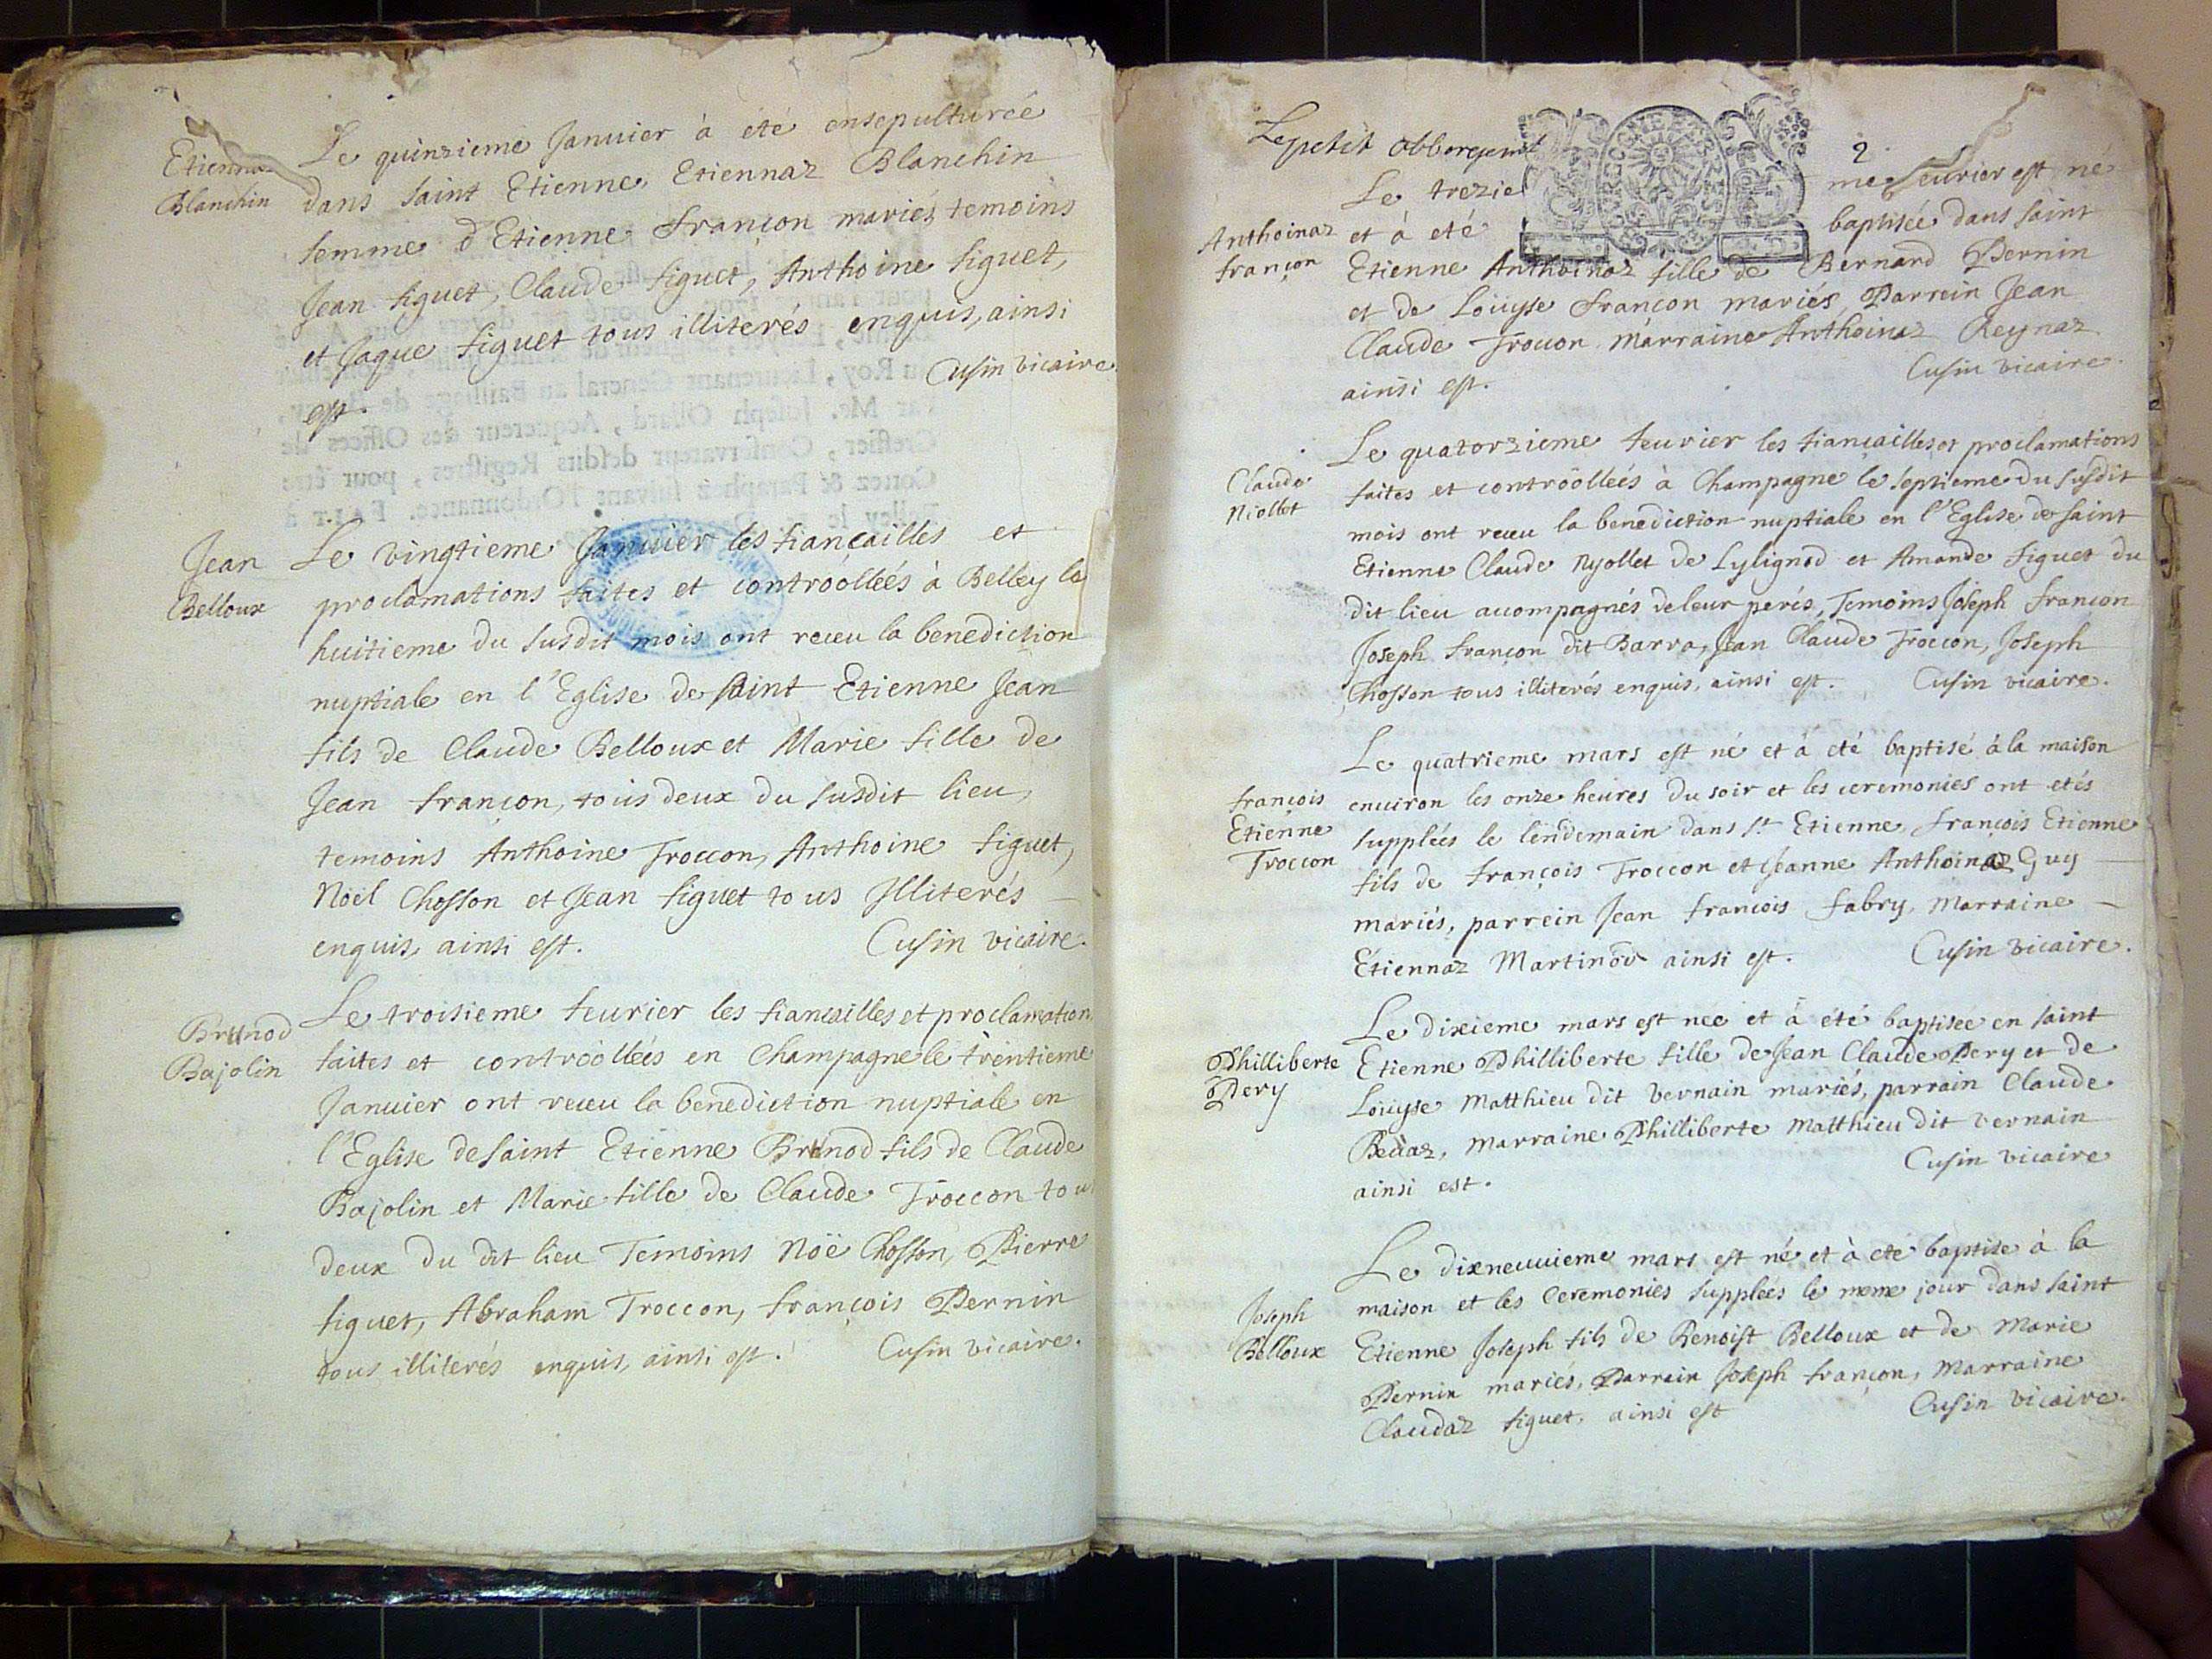 Etiennaz
Blanchin
Le quinzieme Januier à été ensepulturéé
dans saint Etienne, Etiennaz Blanchin
femme d'Etienne françon mariés temoins
Jean figuet, Claude figuet, Anthoine figuet,
et Jaque figuet tous illiterés enquis, ainsi
est. Cusin vicaire
Jean
Belloux
Le vingtieme Januier les fiançailles et
proclamations faites et controolleés à Belley le
huitieme du susdit mois ont receu la benediction
nuptiale en l'Eglise de saint Etienne Jean
fils de Claude Belloux et Marie fille de
Jean françon, tous deux du susdit lieu,
temoins Anthoine Troccon, Anthoine figuet,
Noël Chosson et Jean figuet tous Illiterés
enquis, ainsi est. Cusin vicaire.
Brunod
Bajolin
Le troisieme feurier les fiancailles et proclamation
faites et controolleés en Champagne le trentieme
Januier ont receu la benediction nuptiale en
l'Eglise de saint Etienne Brunod fils de Claude
Bajolin et Marie fille de Claude Troccon tou
deux du dit lieu Temoins Noë Chosson, Pierre
figuet, Abraham Troccon, françois Pernin
tous illiterés enquis, ainsi est. Cusin vicaire.
Lepetit abbergemt
2
Anthoinaz
françon
Le trezieme feurier est ne
et à eté baptisée dans saint
Etienne Anthoinaz fille de Bernard Pernin
et de Loüyse françon mariés Parrein Jean
Claude Trocon marraine Anthoinaz Reynaz
ainsi est. Cusin vicaire.
Claude
Niollet
Le quatorzieme feurier les fiancailles et proclamations
faites et controolleés à Champagne le septieme du susdit
mois ont receu la benediction nuptiale en l'Eglise de saint
Etienne Claude Nyollet de Lylignod et Amande figuet du
dit lieu accompagnés de leur perés, Temoins Joseph françon
Joseph françon dit Barra, Jean Claude Troccon, Joseph
Chosson tous illiterés enquis, ainsi est. Cusin vicaire.
françois
Etienne
Troccon
Le quatrieme mars est né et à eté baptisé à la maison
enuiron les onze heures du soir et les ceremonies ont etés
suppleés le lendemain dans St Etienne, françois Etienne
fils de françois Troccon et Jeanne Anthoinaz Guy
mariés, parrein Jean francois fabry, Marraine
Etiennaz Martinod ainsi est. Cusin vicaire.
Philliberte
Pery
Le dixieme mars est neé et à été baptisée en saint
Etienne Philliberte fille de Jean Claude Pery et de
Loüyse Matthieu dit vernain mariés, parrain Claude
Beuaz, marraine Philliberte Matthieu dit vernain
ainsi est. Cusin vicaire
Joseph
Belloux
Le dixneuuieme mars est né et à eté baptise à la
maison et les Ceremonies suppleés le meme jour dans saint
Etienne Joseph fils de Benoist Belloux et de Marie
Pernin mariés, Parrain Joseph françon, Marraine
Claudaz figuet, ainsi est Cusin vicaire.